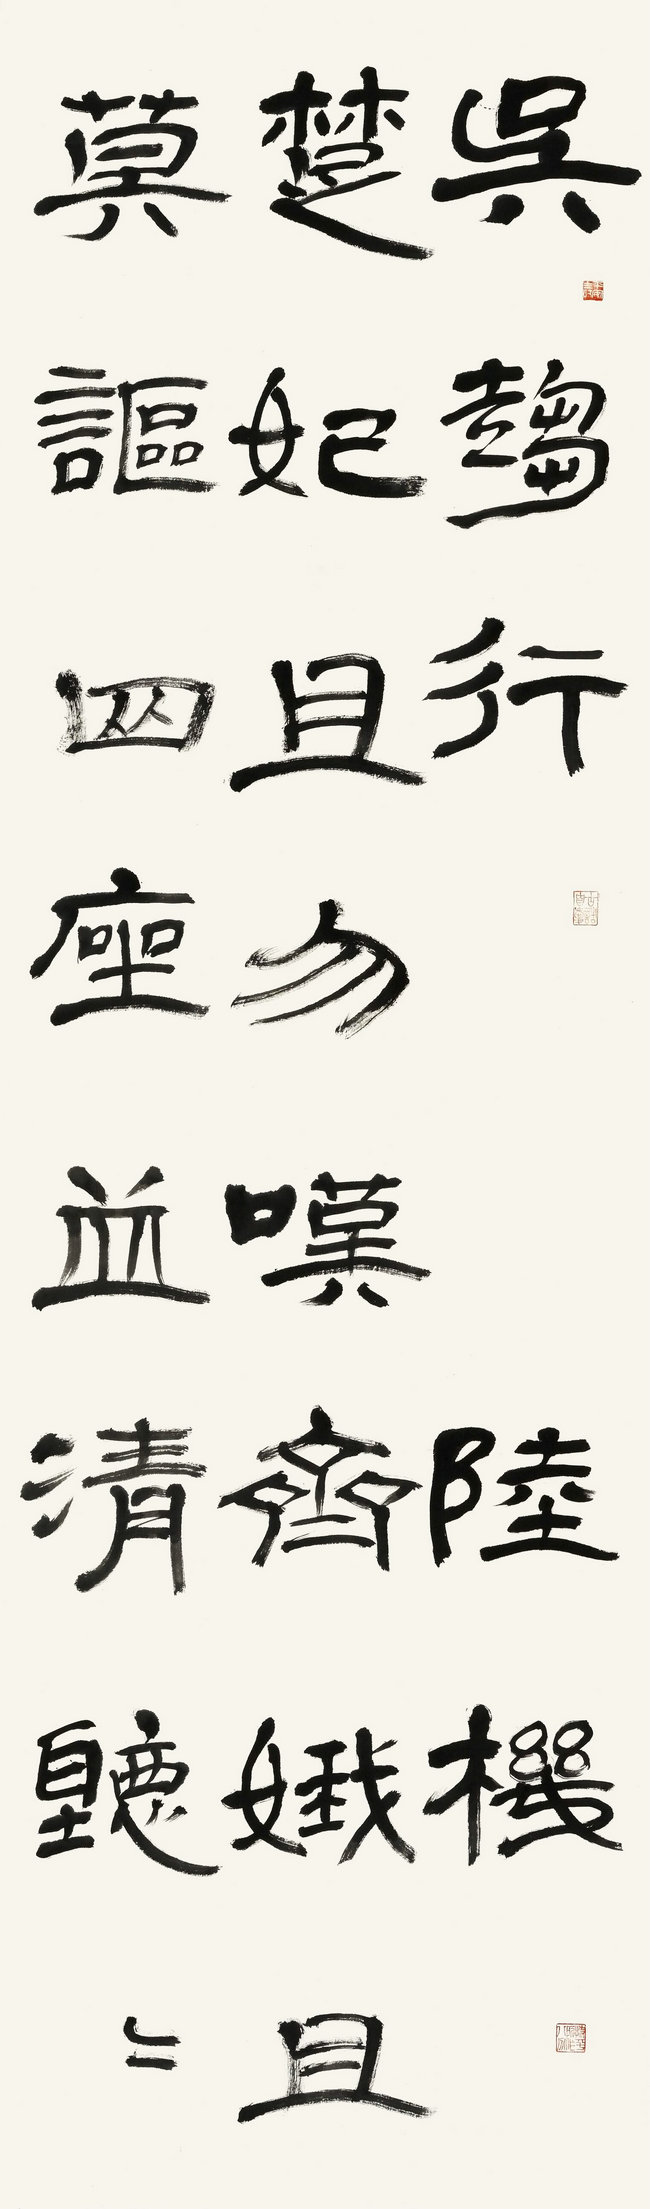 吳趨行 陸機
楚妃且勿嘆齊娥且
莫謳四座並清聽〻